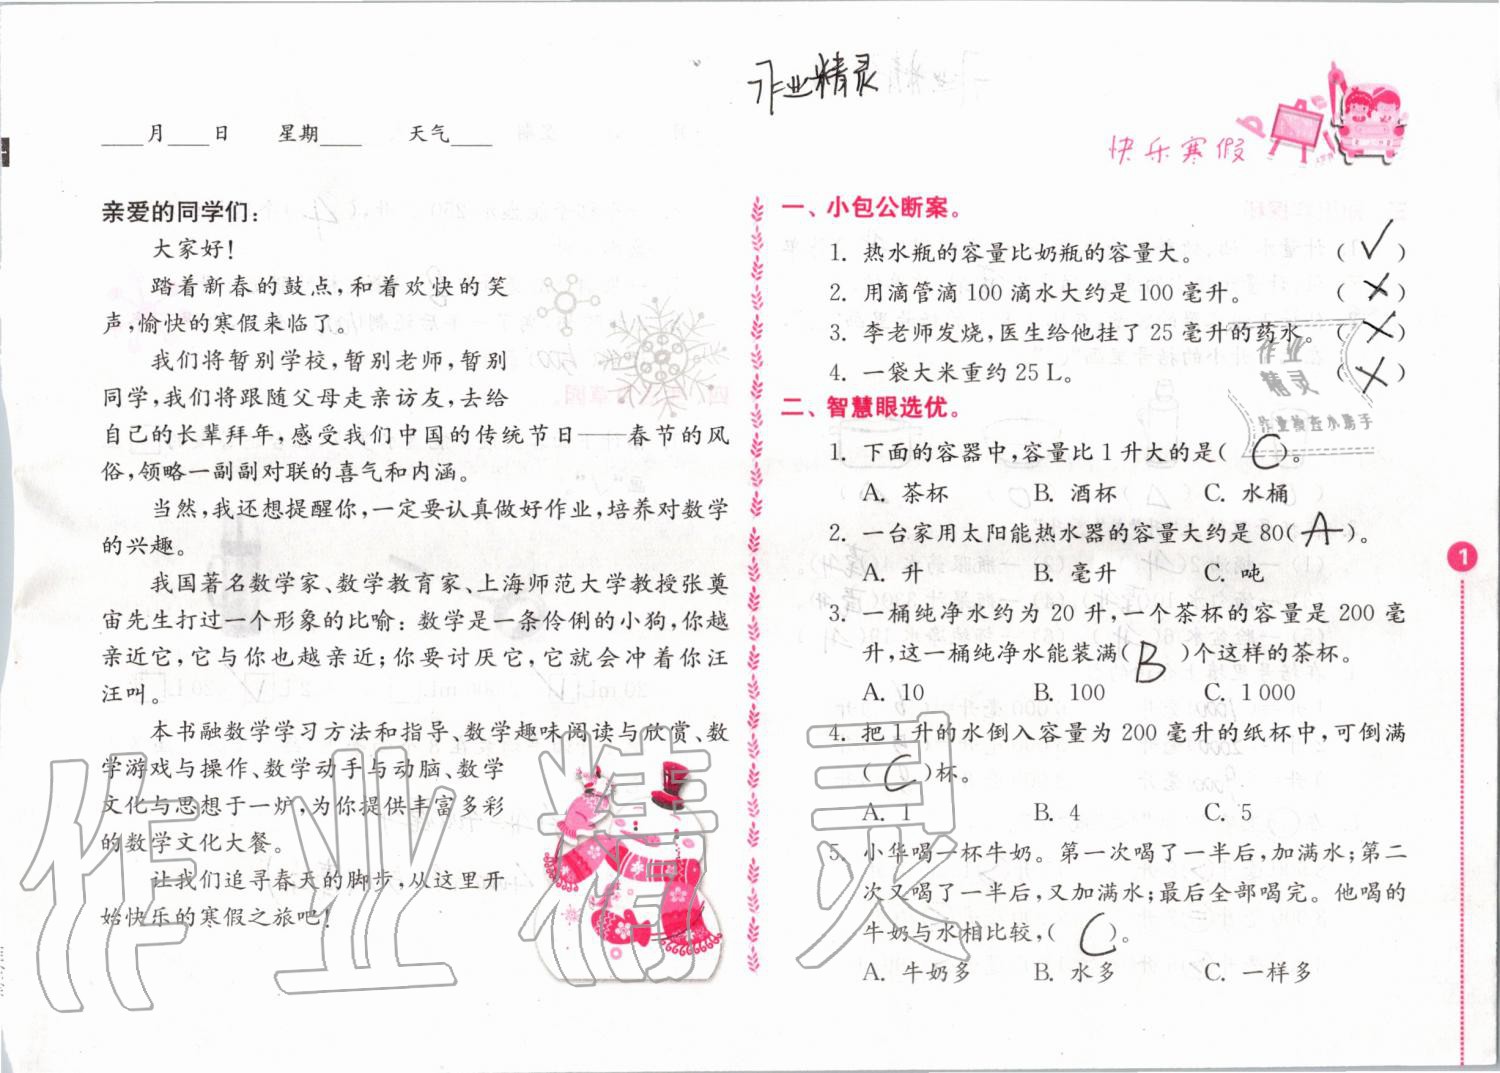 作业精灵
____月____日 星期____ 天气____
快乐寒假
亲爱的同学们:
大家好!
踏着新春的鼓点,和着欢快的笑
声,愉快的寒假来临了。
我们将暂别学校,暂别老师,暂别
同学,我们将跟随父母走亲访友,去给
自己的长辈拜年,感受我们中国的传统节日——春节的风
俗,领略一副副对联的喜气和内涵。
当然,我还想提醒你,一定要认真做好作业,培养对数学
的兴趣。
我国著名数学家、数学教育家、上海师范大学教授张奠
宙先生打过一个形象的比喻:数学是一条伶俐的小狗,你越
亲近它,它与你也越亲近;你要讨厌它,它就会冲着你汪
汪叫。
本书融数学学习方法和指导、数学趣味阅读与欣赏、数
学游戏与操作、数学动手与动脑、数学
文化与思想于一炉,为你提供丰富多彩
的数学文化大餐。
让我们追寻春天的脚步,从这里开
始快乐的寒假之旅吧!
一、小包公断案。
1. 热水瓶的容量比奶瓶的容量大。 (✓)
2. 用滴管滴100滴水大约是100毫升。 (×)
3. 李老师发烧,医生给他挂了25毫升的药水。 (×)
4. 一袋大米重约25 L。 (×)
作业
精灵
作业检查小助手
二、智慧眼选优。
1. 下面的容器中,容量比1升大的是( C )。
A. 茶杯 B. 酒杯 C. 水桶
2. 一台家用太阳能热水器的容量大约是80( A )。
A. 升 B. 毫升 C. 吨
3. 一桶纯净水约为20升,一个茶杯的容量是200毫
升,这一桶纯净水能装满( B )个这样的茶杯。
A. 10 B. 100 C. 1 000
4. 把1升的水倒入容量为200毫升的纸杯中,可倒满
( C )杯。
A. 1 B. 4 C. 5
5. 小华喝一杯牛奶。第一次喝了一半后,加满水;第二
次又喝了一半后,又加满水;最后全部喝完。他喝的
牛奶与水相比较,( C )。
A. 牛奶多 B. 水多 C. 一样多
1
作业精灵